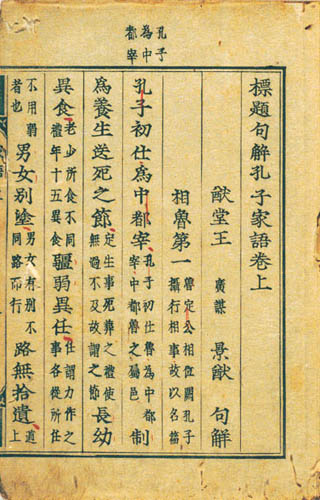 孔子
為中
都宰
標題句解孔子家語卷上
猷堂王 廣謀 景猷 句解
相魯第一
魯定公相位闕孔子
攝行相事故以名篇
孔子初仕爲中都宰
孔子初仕魯為中都
宰中都魯之屬邑
制
爲養生送死之節
定生事死葬之禮使
無過不及故謂之節
長幼
異食
老少所食不同
禮年十五異食
彊弱異任
任謂力作之
事各從所任
不用弱
者也
男女別塗
男女有別不
同路而行
路無拾遺
道
上